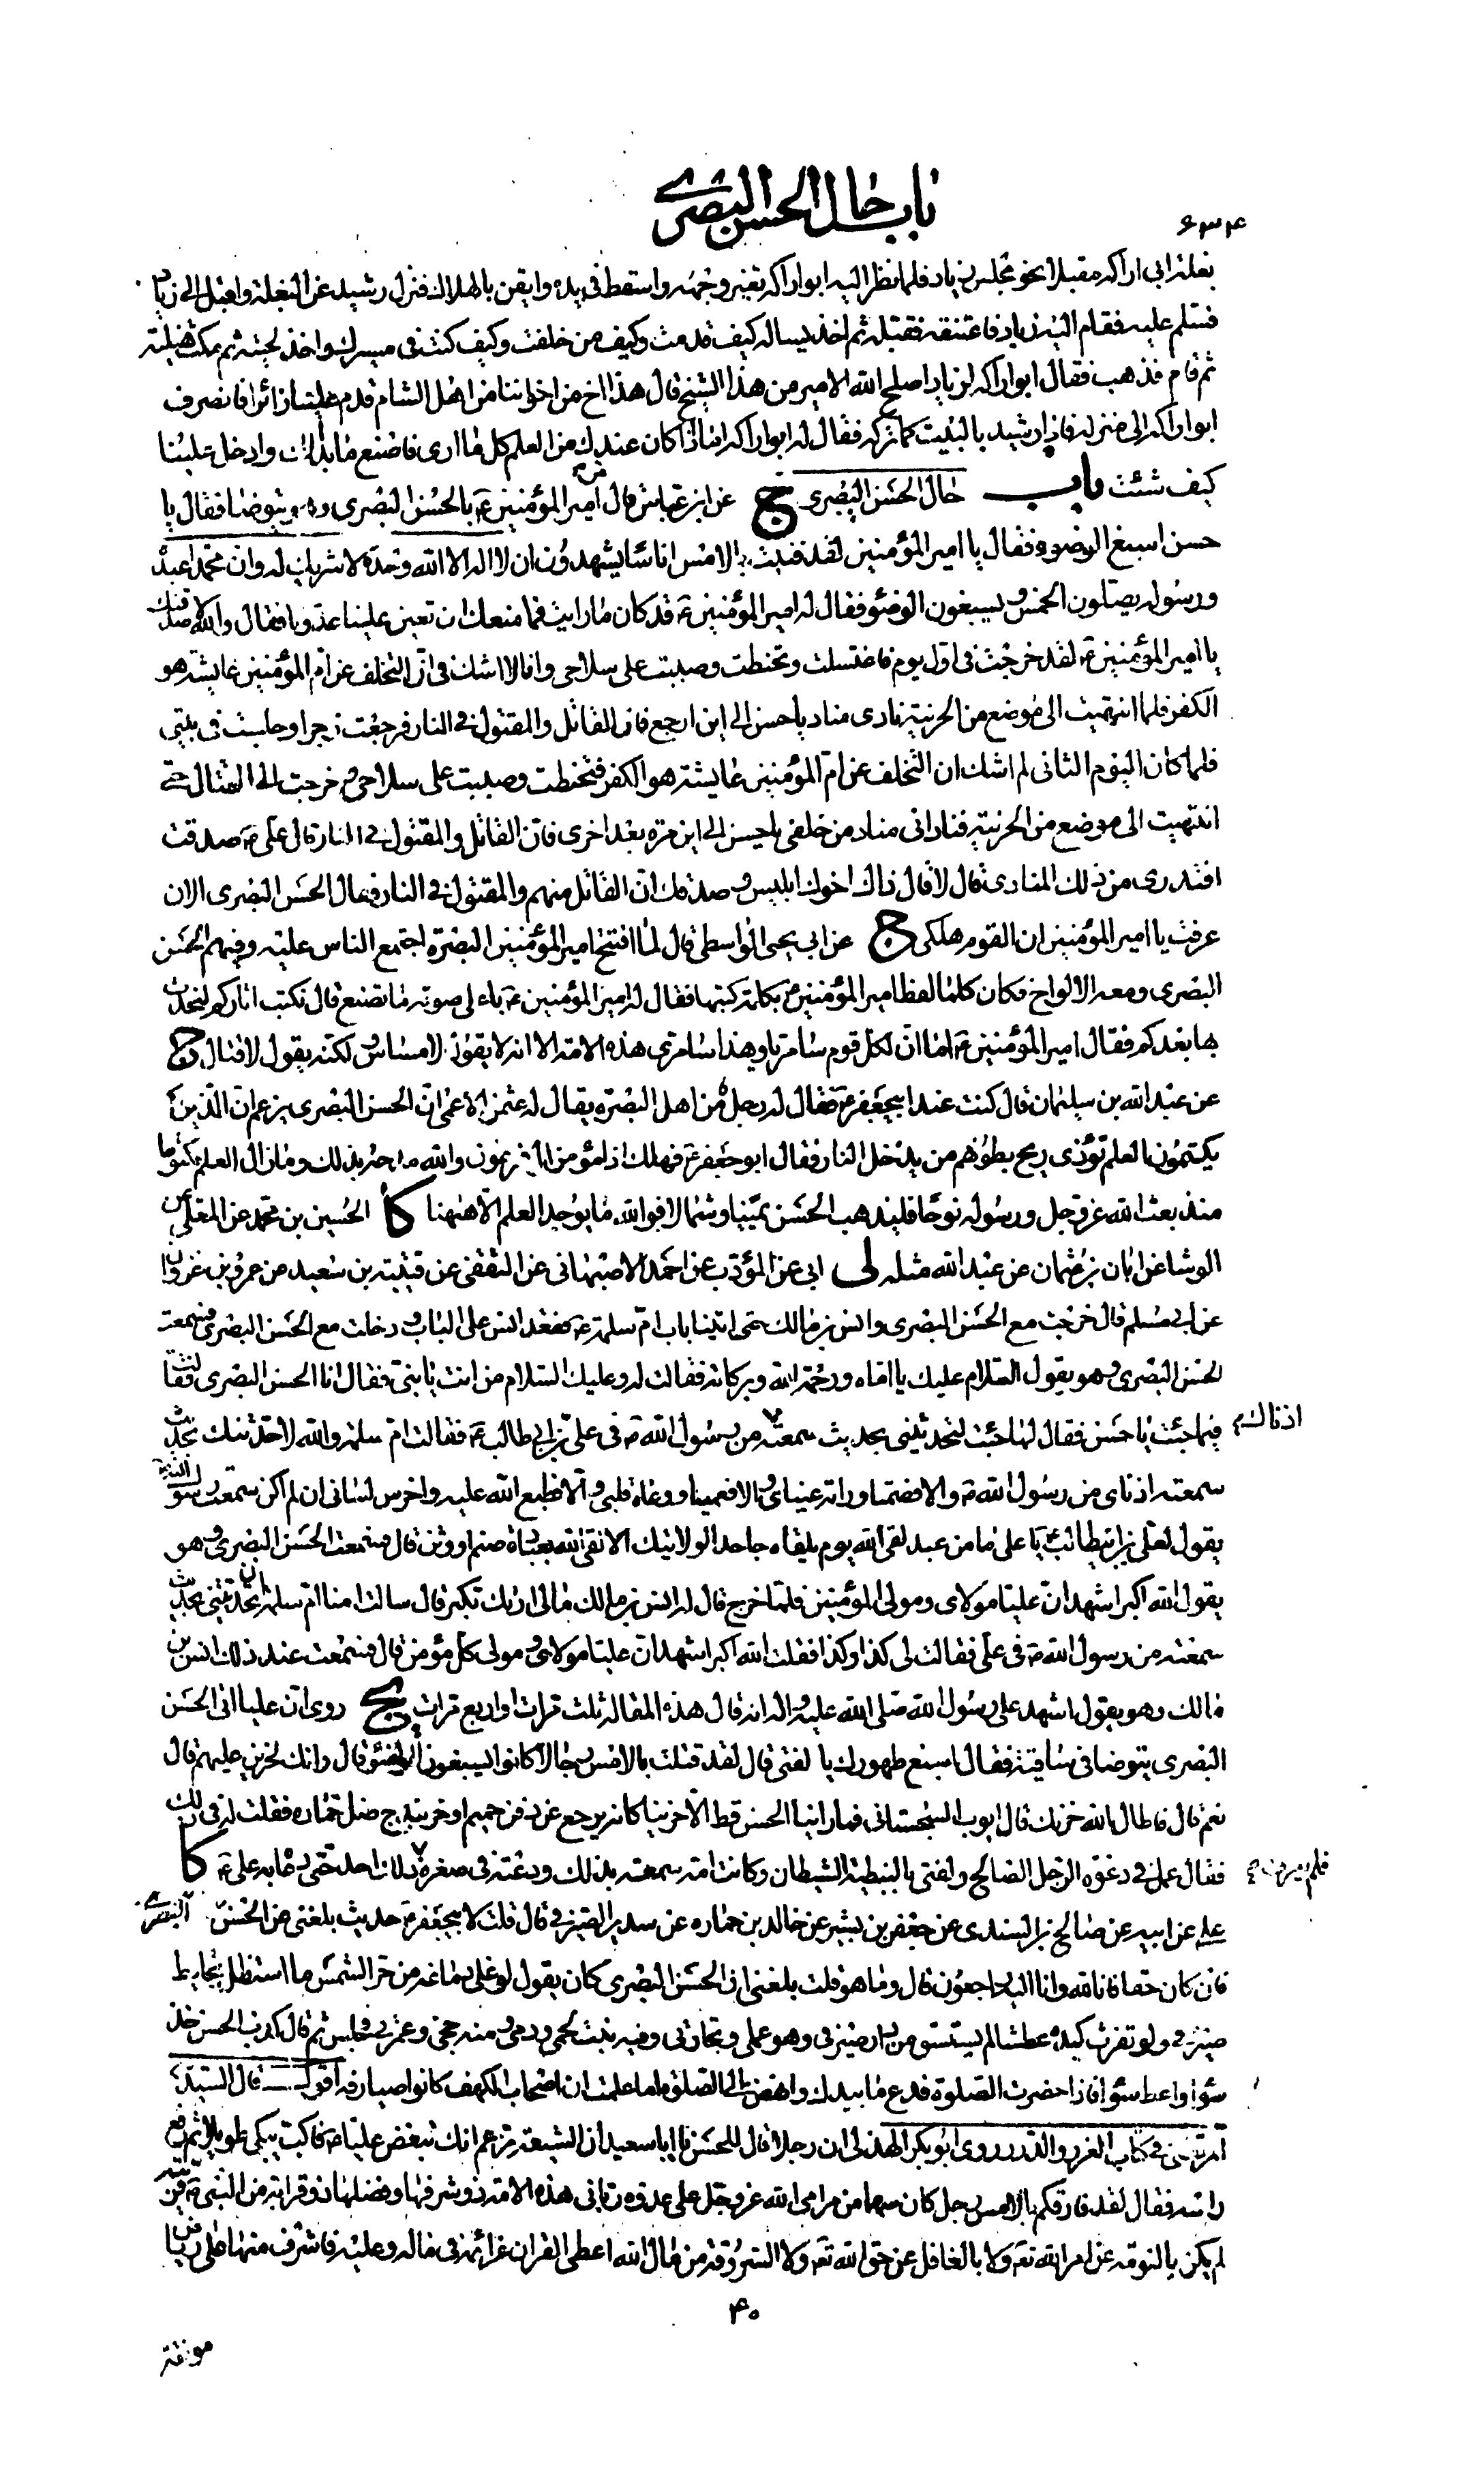 باب حال الحسن البصري
۶۳۴
بغلة ابي اراكه مقبلا نحو مجلس زياد فلما نظر اليه ابو اراكه تغير وجهه واسقط في يده وايقن بالهلاك فنزل رشيد عن البغلة واقبل الى زياد
فسلم عليه فقام اليه زياد فاعتنقه فقبله ثم اخذ يساله كيف قدمت وكيف من خلفت وكيف كنت في مسيرك واخذ لحيته ثم مكث هنيئة
ثم قام فذهب فقال ابو اراكه لزياد اصلح الله الامير من هذا الشيخ قال هذا اخ من اخواننا من اهل الشام قدم علينا زائرا فانصرف
ابو اراكه الى منزله فاذا رشيد بالبيت كما تركه فقال له ابو اراكه اما اذا كان عندك من العلم كل ما ارى فاصنع ما بدا لك وادخل علينا
كيف شئت باب حال الحسن البصري ج عن ابن عباس قال مر امير المؤمنين ع بالحسن البصري وهو يتوضا فقال يا
حسن اسبغ الوضوء فقال يا امير المؤمنين لقد قتلت بالامس اناسا يشهدون ان لا اله الا الله وحده لا شريك له وان محمدا عبده
ورسوله يصلون الخمس ويسبغون الوضوء فقال له امير المؤمنين ع قد كان ما رايت فما منعك ان تعين علينا عدونا فقال والله لاصدقنك
يا امير المؤمنين ع لقد خرجت في اول يوم فاغتسلت وتحنطت وصببت على سلاحي وانا لا اشك في ان التخلف عن ام المؤمنين عايشة هو
الكفر فلما انتهيت الى موضع من الخريبة نادى مناد يا حسن الى اين ارجع فان القاتل والمقتول في النار فرجعت ذعرا وجلست في بيتي
فلما كان اليوم الثاني لم اشك ان التخلف عن ام المؤمنين عايشة هو الكفر فتحنطت وصببت على سلاحي وخرجت الى القتال حتى
انتهيت الى موضع من الخريبة فناداني مناد من خلفي يا حسن الى اين مرة بعد اخرى فان القاتل والمقتول في النار قال علي ع صدقت
افتدري من ذلك المنادي قال لا قال ذاك اخوك ابليس وصدقك ان القاتل منهم والمقتول في النار فقال الحسن البصري الان
عرفت يا امير المؤمنين ان القوم هلكى ج عن ابي يحيى الواسطي قال لما افتتح امير المؤمنين البصرة اجتمع الناس عليه وفيهم الحسن
البصري ومعه الالواح فكان كلما لفظ امير المؤمنين ع بكلمة كتبها فقال له امير المؤمنين ع باعلى صوته ما تصنع قال نكتب اثاركم لنحدث
بها بعدكم فقال امير المؤمنين ع اما ان لكل قوم سامريا وهذا سامري هذه الامة الا انه لا يقول لا مساس ولكنه يقول لا قتال ج
عن عبد الله بن سليمان قال كنت عند ابي جعفر ع فقال له رجل من اهل البصرة يقال له عثمن الاعمى ان الحسن البصري يزعم ان الذين
يكتمون العلم تؤذي ريح بطونهم من يدخل النار فقال ابو جعفر ع فهلك اذا مؤمن ال فرعون والله مدحه بذلك وما زال العلم مكتوما
منذ بعث الله عز وجل ورسوله نوحا فليذهب الحسن يمينا وشمالا فوالله ما يوجد العلم الا ههنا كا الحسين بن محمد عن المعلى عن
الوشا عن ابان بن عثمان عن عبد الله مثله لى ابي عن المؤدب عن احمد الاصبهاني عن الثقفي عن قتيبة بن سعيد عن عمرو بن غزوان
عن ابي مسلم قال خرجت مع الحسن البصري وانس بن مالك حتى اتينا باب ام سلمة ع فقعد انس على الباب ودخلت مع الحسن البصري فسمعت
الحسن البصري وهو يقول السلام عليك يا اماه ورحمة الله وبركاته فقالت له وعليك السلام من انت يا بني فقال انا الحسن البصري فقالت
فيما جئت يا حسن فقال لها جئت لتحدثيني بحديث سمعته من رسول الله ص في علي بن ابي طالب ع فقالت ام سلمة والله لاحدثنك بحديث
اذناك
سمعته اذناي من رسول الله ص والا فصمتا وراته عيناي والا فعميتا ووعاه قلبي والا فطبع الله عليه واخرس لساني ان لم اكن سمعت رسول الله
يقول لعلي بن ابيطالب ع يا علي ما من عبد لقي الله يوم يلقاه جاحدا لولايتك الا لقي الله بعبادة صنم او وثن قال فسمعت الحسن البصري وهو
يقول الله اكبر اشهد ان عليا مولاي ومولى المؤمنين فلما خرج قال له انس بن مالك ما لي اراك تكبر قال سالت امنا ام سلمة ان تحدثني بحديث
سمعته من رسول الله ص في علي فقالت لي كذا وكذا فقلت الله اكبر اشهد ان عليا مولاي ومولى كل مؤمن قال فسمعت عند ذلك انس بن
مالك وهو يقول اشهد على رسول الله صلى الله عليه واله انه قال هذه المقالة ثلث مرات او اربع مرات يج روي ان عليا اتى الحسن
البصري يتوضا في ساقية فقال اسبغ طهورك يا لفتى قال لقد قتلت بالامس رجالا كانوا يسبغون الوضوء قال وانك لحزين عليهم قال
نعم قال فاطال الله حزنك قال ايوب السجستاني فما راينا الحسن قط الا حزينا كانه يرجع عن دفن حميم او خربندج ضل حماره فقلت له في ذلك
فقال عمل في دعوة الرجل الصالح ولفتى بالنبطية الشيطان وكانت امه سمته بذلك ودعته في صغره فلم يعرف ذلك احد حتى دعاه به علي ع كا
علي عن ابيه عن صالح بن السندي عن جعفر بن بشير عن خالد بن عماره عن سدير الصيرفي قال قلت لابي جعفر ع حديث بلغني عن الحسن البصري
فان كان حقا فانا لله وانا اليه راجعون قال وما هو قلت بلغني ان الحسن البصري كان يقول لو غلى دماغه من حر الشمس ما استظل بحايط
صيرفي ولو تفرث كبده عطشا لم يستسق من دار صيرفي وهو عملي وتجارتي وفيه نبت لحمي ودمي ومنه حجي وعمرتي فجلس ثم قال كذب الحسن خذ
سواء واعط سواء فاذا حضرت الصلوة فدع ما بيدك وانهض الى الصلوة اما علمت ان اصحاب الكهف كانوا صيارفة اقول قال السيد
المرتضى في كتاب الغرر والدرر روى ابو بكر الهذلي ان رجلا قال للحسن يا ابا سعيد ان الشيعة تزعم انك تبغض عليا ع فاكب يبكي طويلا ثم رفع
راسه فقال لقد فارقكم بالامس رجل كان سهما من مرامي الله عز وجل على عدوه رباني هذه الامة ذو شرفها وفضلها ذو قرابة من النبي ص قريبة
لم يكن بالنومة عن امر الله تعه ولا بالغافل عن حق الله تعه ولا السروقة من مال الله اعطى القران عزائمه في ماله وعليه فاشرف منها على رياض
۴۰
مونقة